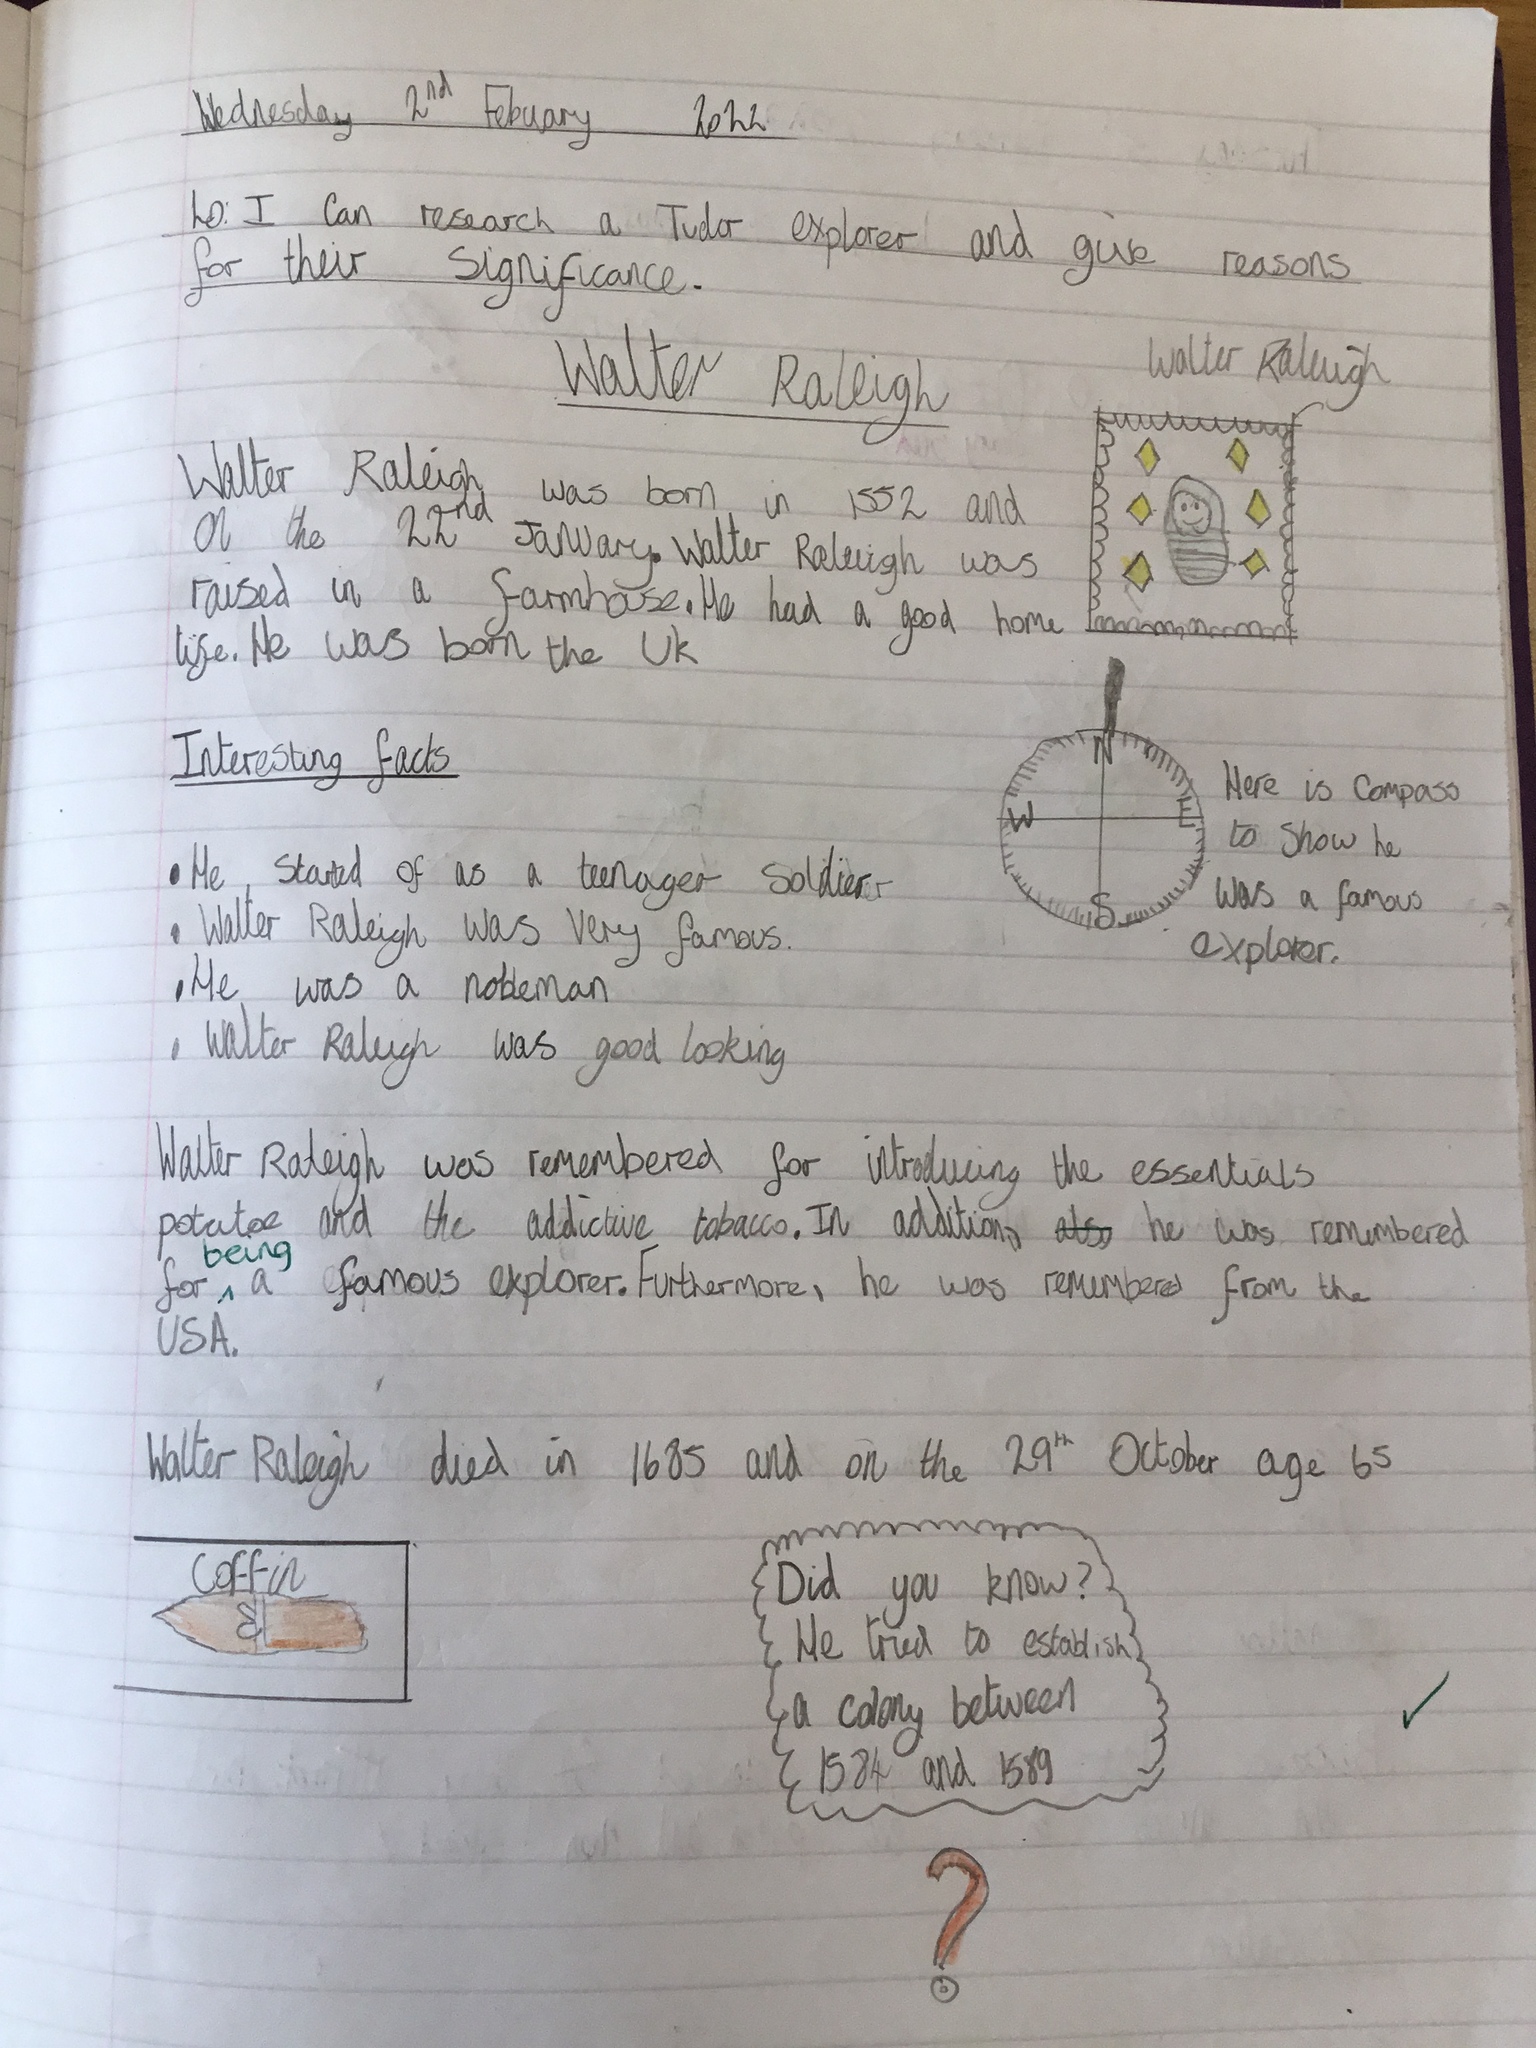 Wednesday 2nd Febuary 2022
Lo: I can research a Tudor explorer and give reasons
for their significance.
Walter Raleigh
Walter Raleigh
Walter Raleigh was born in 1552 and
on the 22nd January. Walter Raleigh was
raised in a farmhouse. He had a good home
life. He was born the Uk
N
W
E
S
Here is compass
to show he
was a famous
explorer.
Interesting facts
• He started of as a teenager soldier
• Walter Raleigh was very famous.
• He was a nobleman
• Walter Raleigh was good looking
Walter Raleigh was remembered for introducing the essentials
potatoe and the addictive tobacco. In addition, also he was remembered
for being a famous explorer. Furthermore, he was remembered from the
USA.
Walter Raleigh died in 1685 and on the 29th October age 65
Coffin
Did you know?
He tried to establish
a colony between
1584 and 1589
?